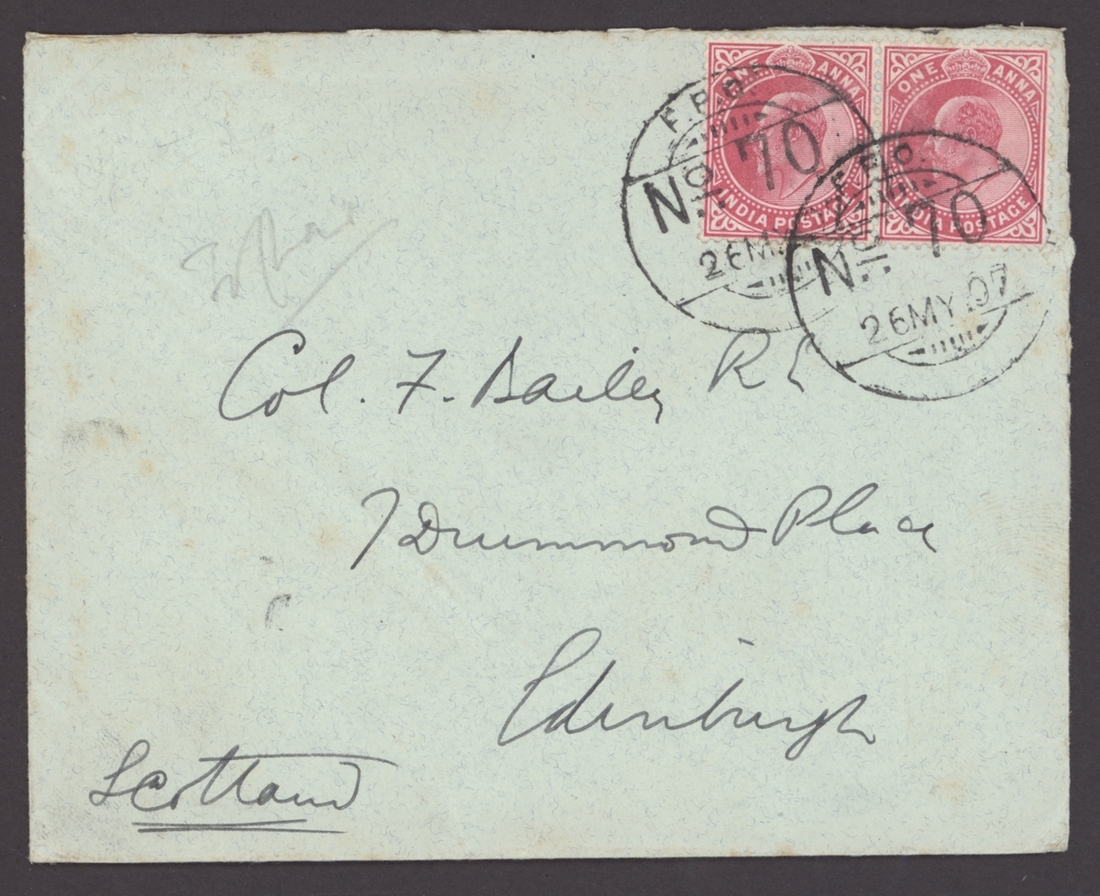 ONE ANNA ONE ANNA
INDIA POSTAGE INDIA POSTAGE
F.P.O.
No. 70
26MY
F.P.O.
No. 70
26MY.07
Col. F. Bailey R E
7 Drummond Place
Edinburgh
Scotland